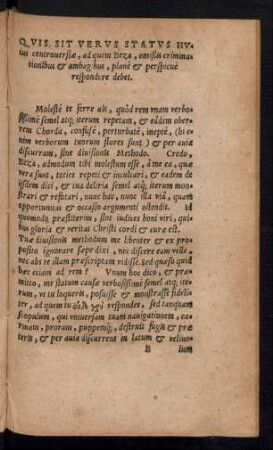 QVIS SIT VERVS STATVS HV-
ius controuersiæ, ad quem Beza, omissis crimina-
tionibus & ambagibus, planè & perspicuè
respondere debet.
Molestè te ferre ais, quòd rem vnam verbo-
sissimè semel atq; iterum repetam, & eadem ober-
rem Chorda, confusè, perturbatè, ineptè, (hi e-
nim verborum tuorum flores sunt) & per auia
discurram, sine diuisionis Methodo. Credo,
Beza, admodum tibi molestum esse, à me ea, quæ
vera sunt, toties repeti & inculcari, & eadem de
ijsdem dici, & tua deliria semel atq; iterum mon-
strari & refutari, nunc hac, nunc illa viâ, quam
opportunitas & occasio argumenti ostendit. Id
quomodo præstiterim, sint iudices boni viri, qui-
bus gloria & veritas Christi cordi & curæ est.
Tuæ diuisionis methodum me libenter & ex pro-
posito ignorare sæpe dixi, nec discere eam velle,
nec abs te illam præscriptam ridisse. Sed quæso quid
hæc etiam ad rem? Vnum hoc dico, & præ-
mitto, me statum causæ verbosissimè semel atq; ite-
rum, vt tu loqueris, posuisse & monstrasse fideli-
ter, ad quem tu respondes, sed tanquam
scopulum, qui vniuersam tuam nauigationem, ca-
rinam, proram, puppemq́;, destruit fugis & præ-
teris, & per auia discurrens in latum & veliuo-
B lum